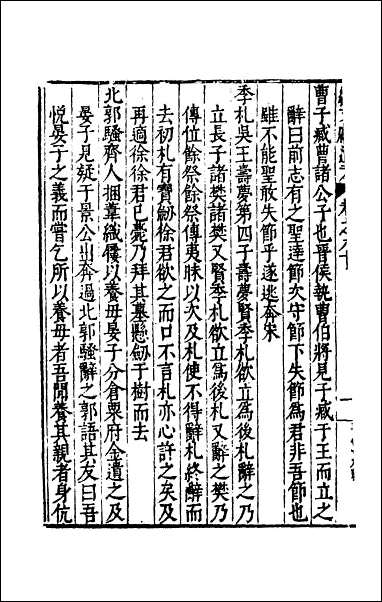 曹子臧曹諸公子也晉侯執曹伯將見子臧于王而立之
辭曰前志有之聖達節次守節下失節為君非吾節也
雖不能聖敢失節乎遂逃奔宋
季札吳王壽夢第四子壽夢賢季札欲立為後札辭之乃
立長子諸樊諸樊又賢季札欲立為後札又辭之樊乃
傳位餘祭餘祭傳夷昧以次及札使不得辭札終辭而
去初札有寶劒徐君欲之而口不言札亦心許之矣及
再適徐徐君已薨乃拜其墓懸劒于樹而去
北郭騷齊人捆葦織屨以養毋晏子分倉粟府金遺之及
晏子見疑于景公出奔過北郭騷辭之郭語其友曰吾
悅晏子之義而嘗乞所以養毋者吾聞養其親者身伉